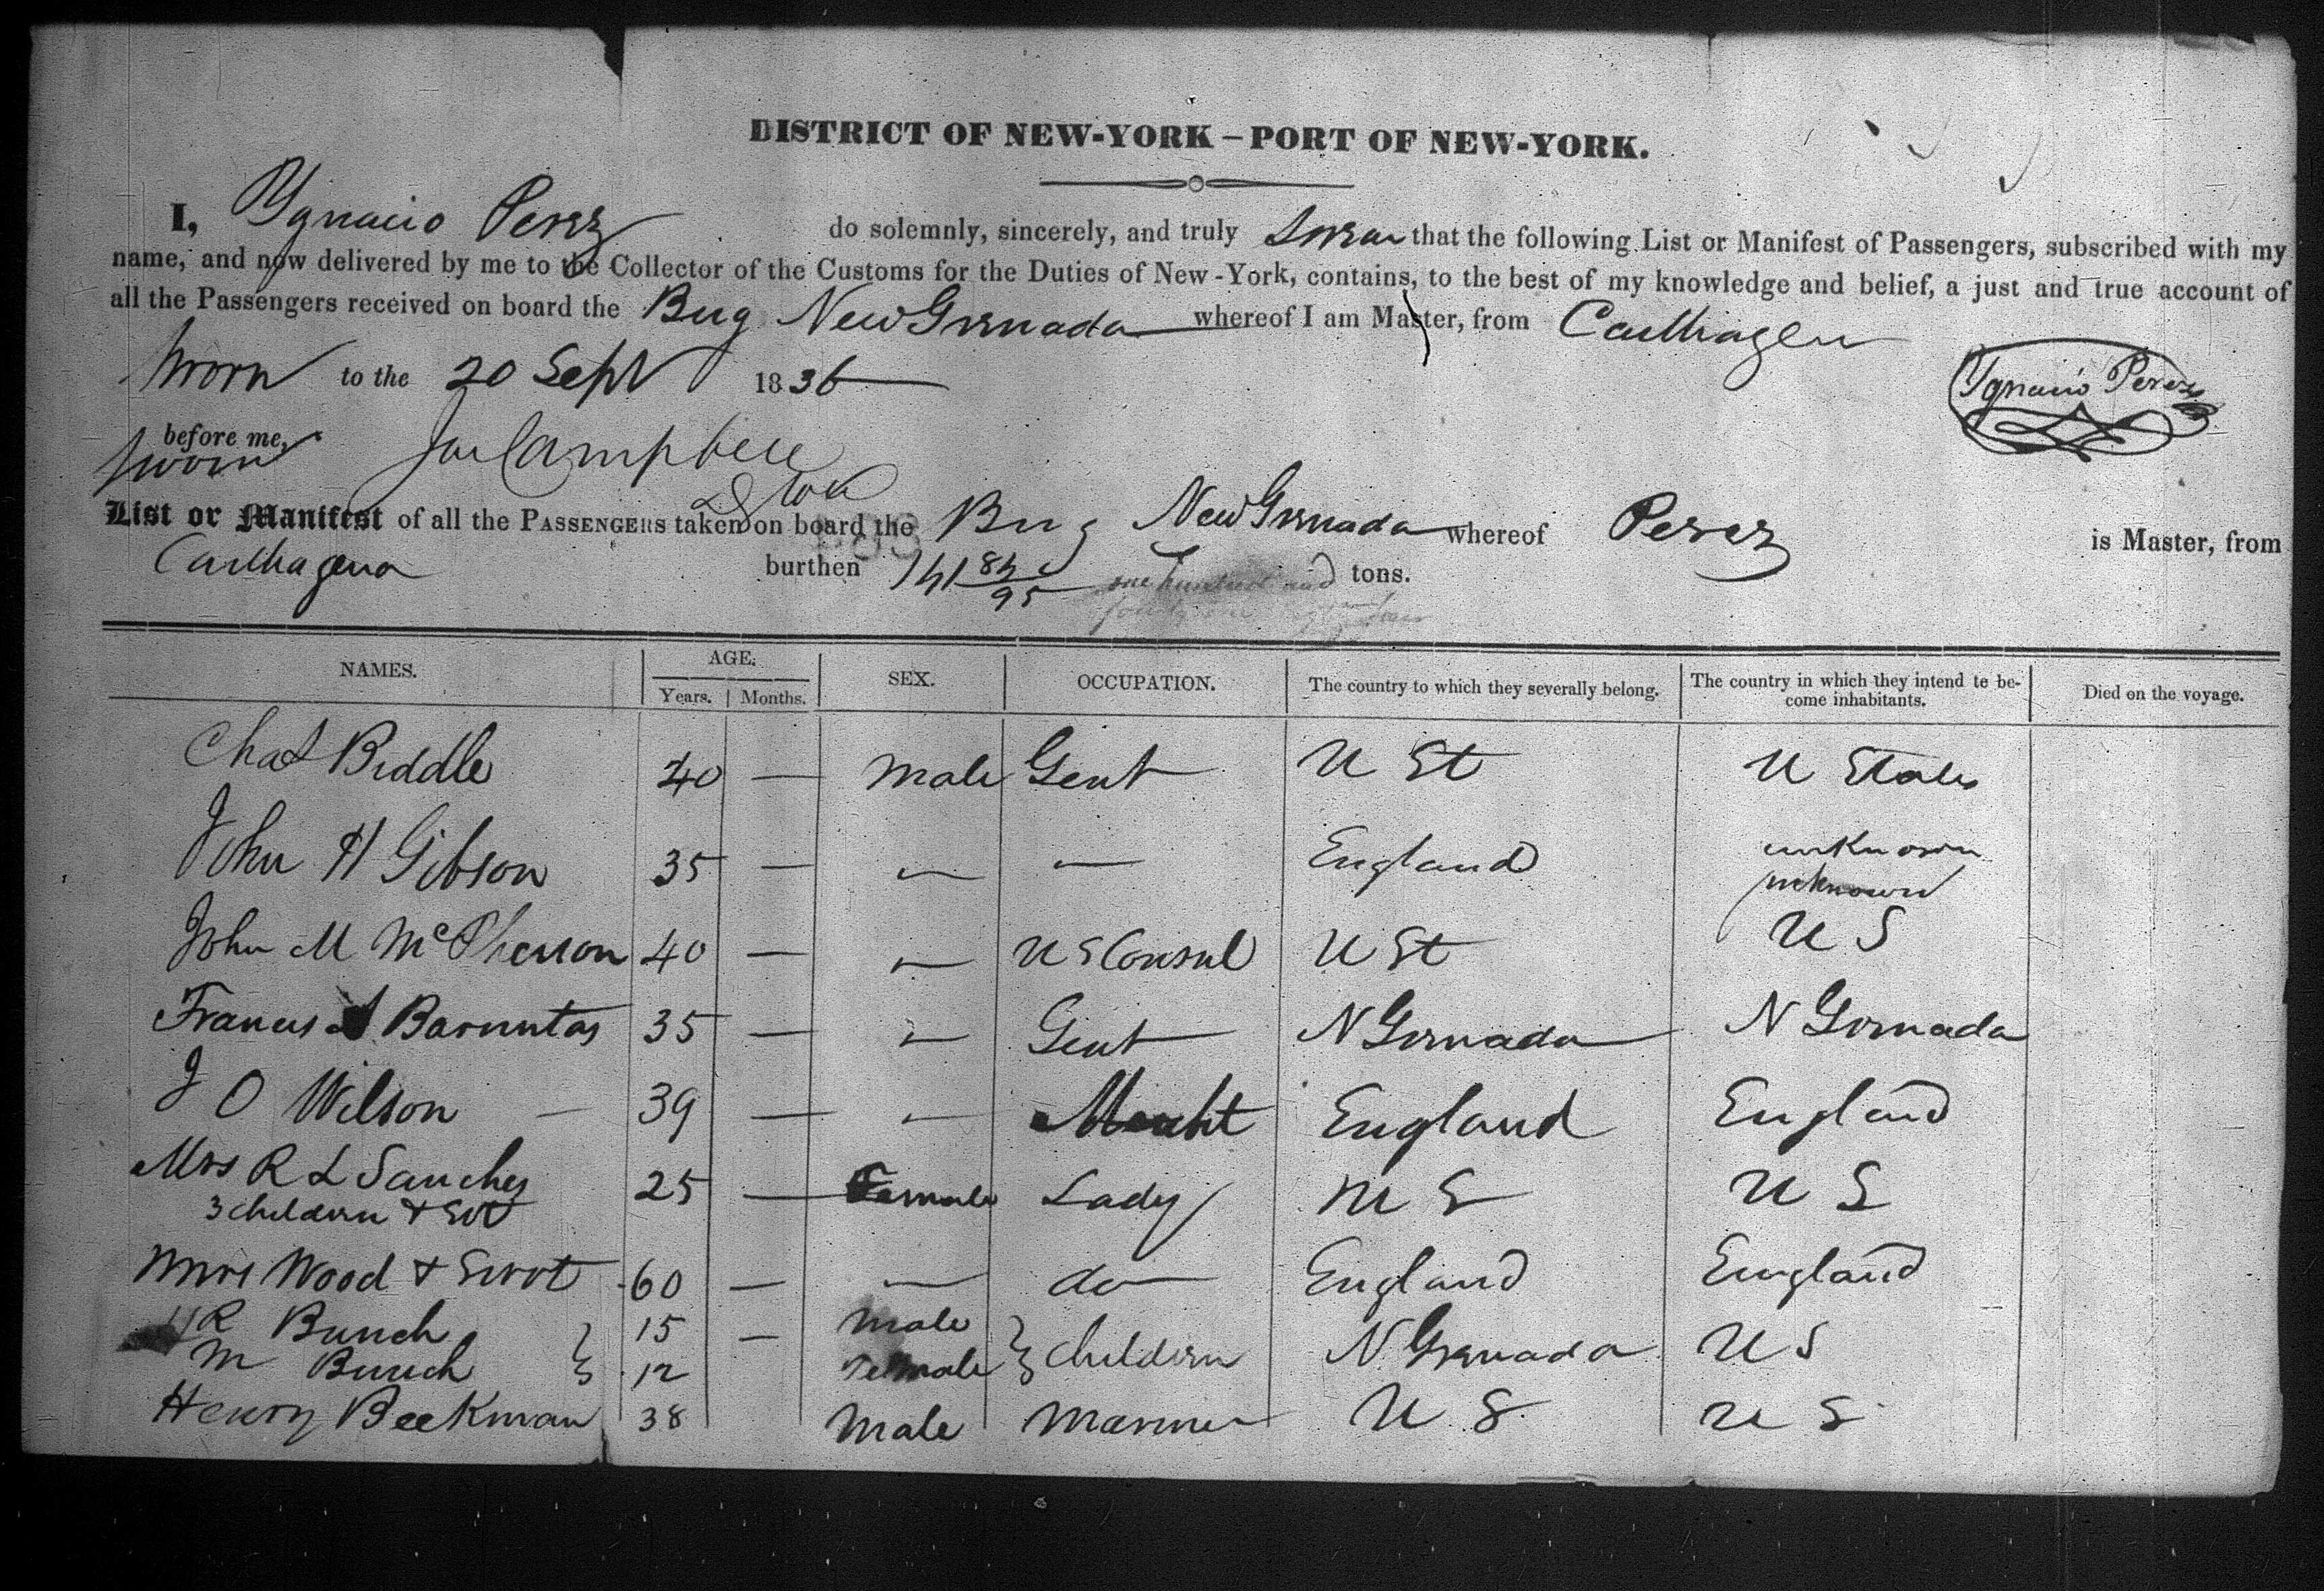 DISTRICT OF NEW-YORK – PORT OF NEW-YORK.
I, Ygnacio Perez do solemnly, sincerely, and truly Swear that the following List or Manifest of Passengers, subscribed with my
name, and now delivered by me to the Collector of the Customs for the Duties of New-York, contains, to the best of my knowledge and belief, a just and true account of
all the Passengers received on board the Brig New Grenada whereof I am Master, from Carthagen
Sworn to the 20 Sept 1836
Ygnacio Perez
before me,
sworn Campbell
List or Manifest of all the PASSENGERS taken on board the Brig New Grenada whereof Perez is Master, from
Carthagena burthen 141 84/95 one hundred and tons.
NAMES. AGE. SEX. OCCUPATION. The country to which they severally belong. The country in which they intend to be-come inhabitants. Died on the voyage.
Years. Months.
Chas Biddle 40 — Male Gent U St U States
John H Gibson 35 — " — England unknown
unknown
John M McPherson 40 — " U S Consul U St U S
Francis Barnuntas 35 — " Gent N Grenada N Grenada
J O Wilson — 39 — " Mercht England England
Mrs R L Sanches 25 — Female Lady U S U S
3 children & Svt
Mrs Wood & Servt 60 — — do England England
H R Bunch } 15 — Male } children N Grenada U S
M Bunch } 12 Female }
Henry Beekman 38 Male Mariner U S U S